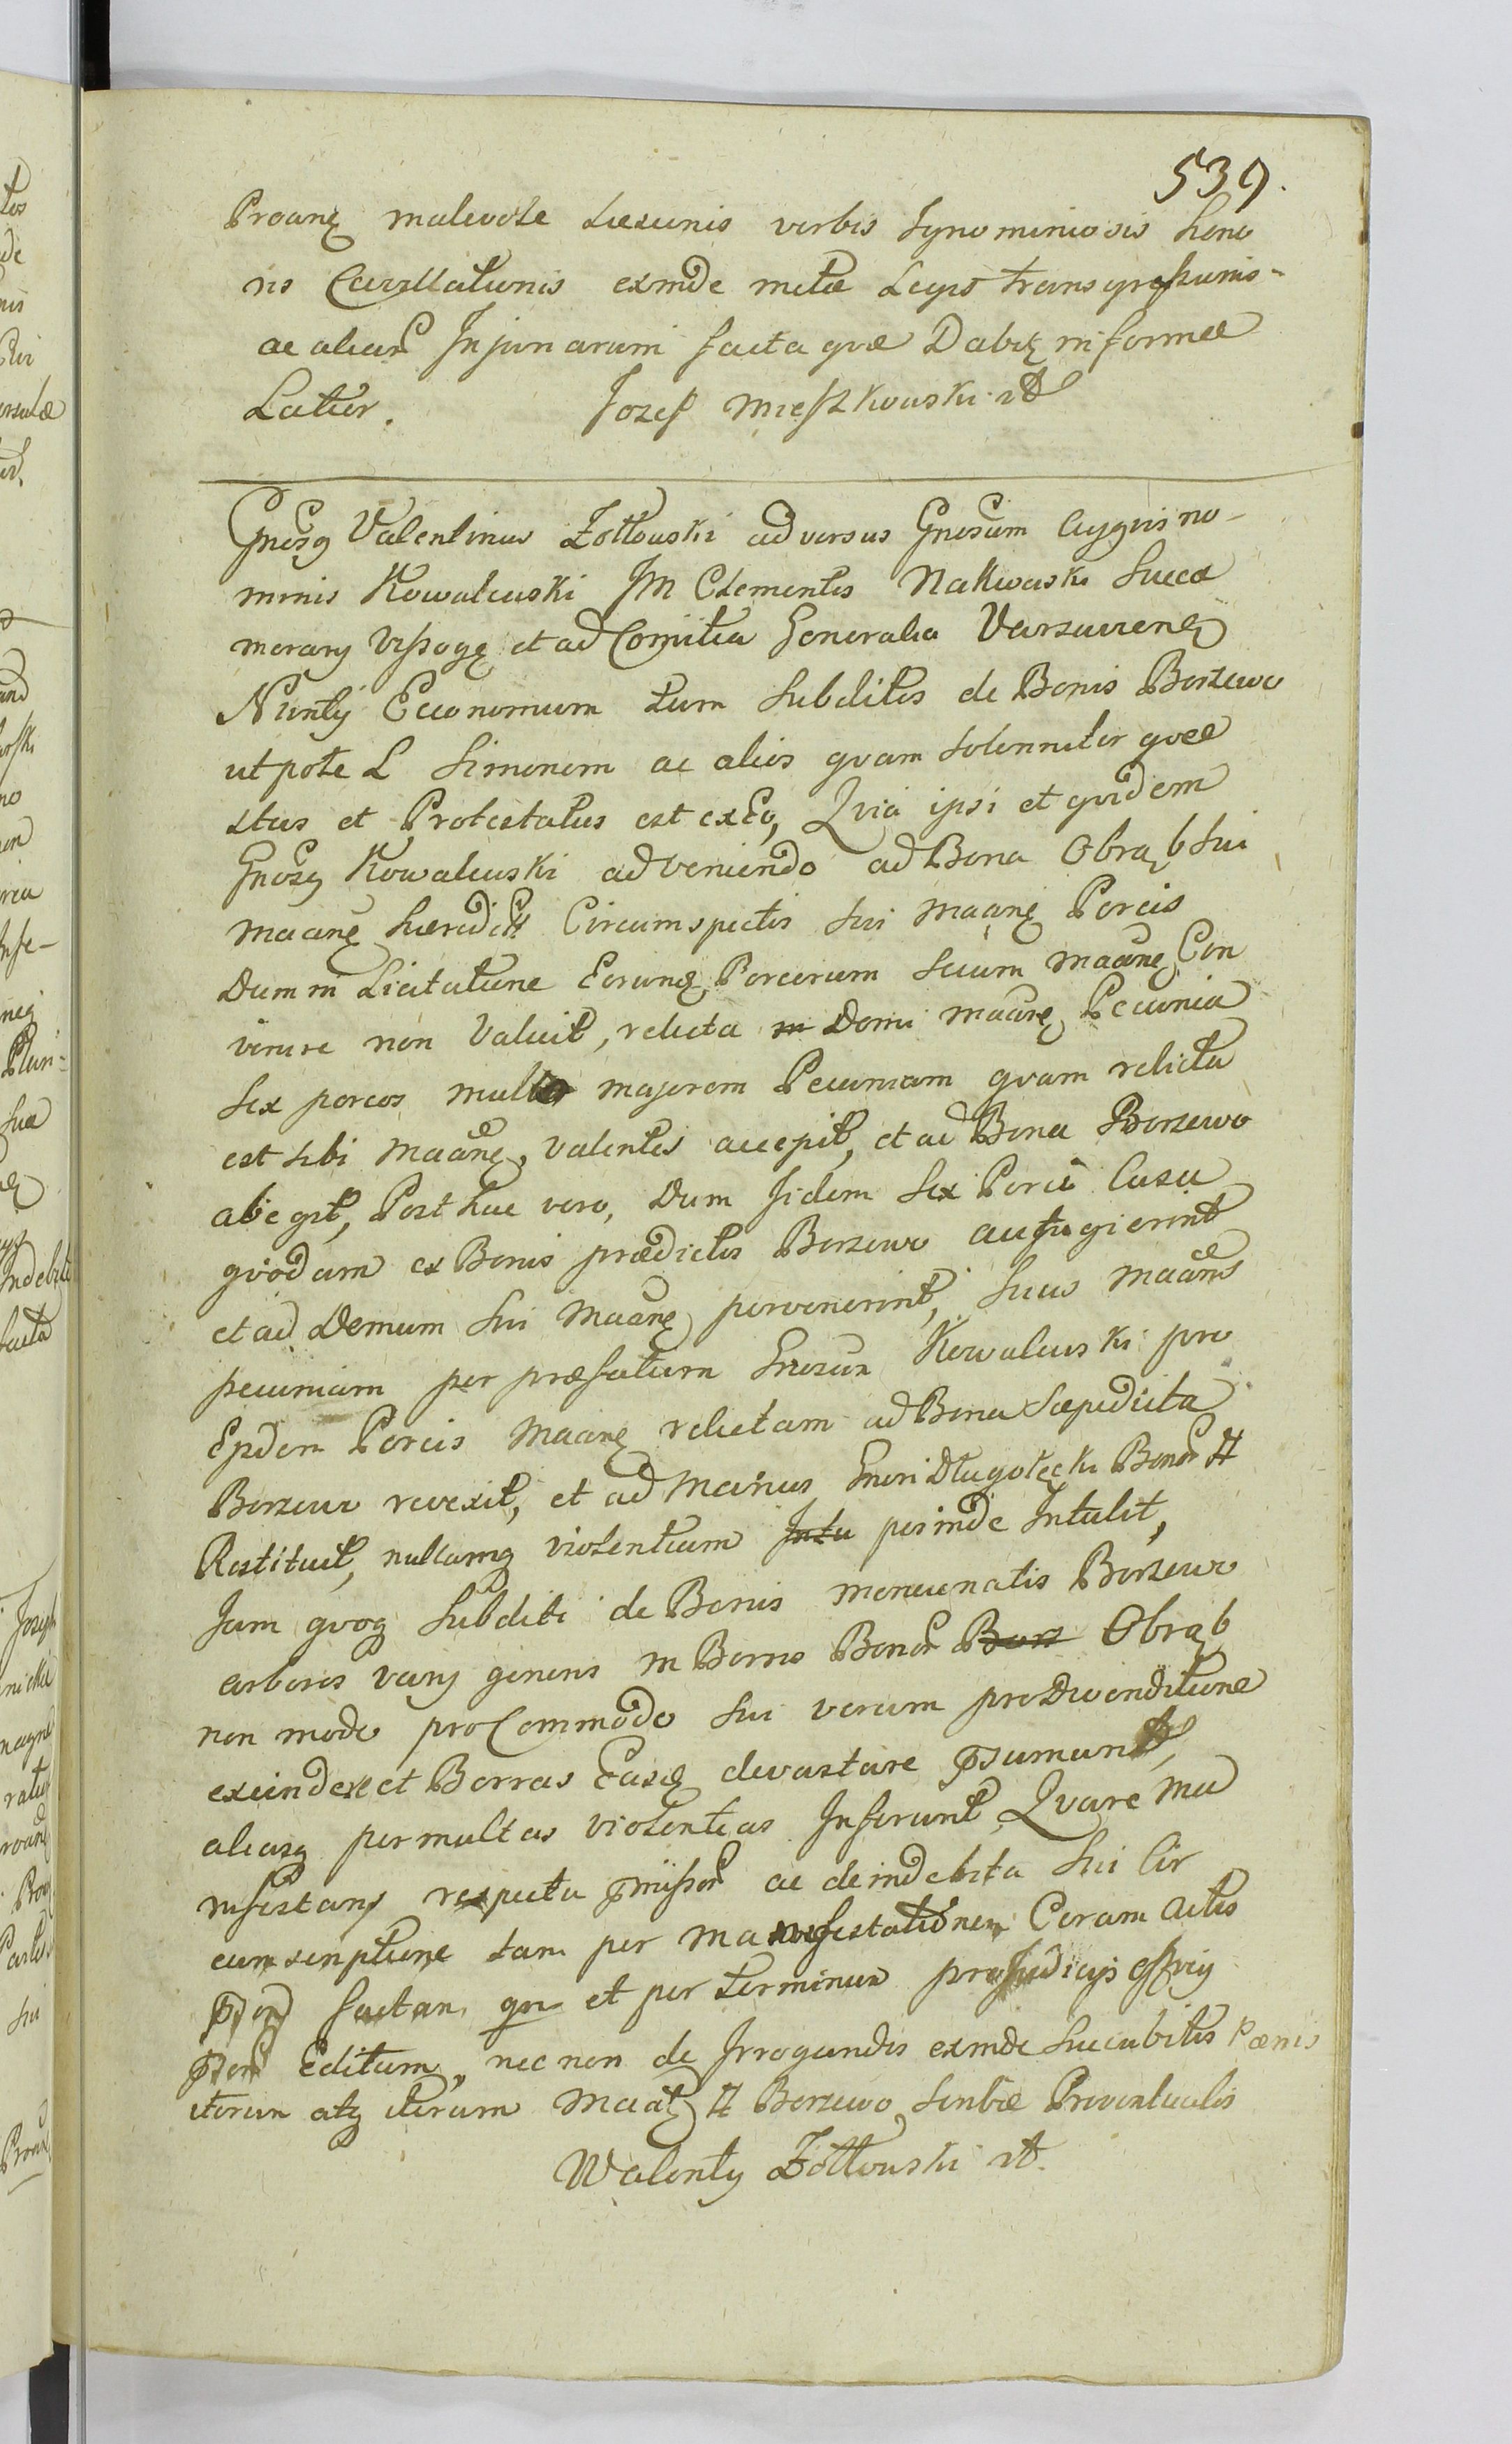 539.
Proanę malevole Læsionis verbis Ignominiosis Hono
ris Cavillationis exinde metæ Legis transgressionis-
ac aliar Injuriarum facta quæ Dabit in forma
Latior. Jozef Mieszkowski mp
Gnosus Valentinus Zołtowski adversus Gnosum Cujusvis no-
minis Kowalewski JM Clementis Nakwaski Succa
merarij Vissogę et ad Comitia Generalia Varsavienę
Nuntij Œconomum tum Subditos de Bonis Borzewo
utpote L Simonem ac alios quam Solenniter quæ
stus et Protestatus est ex Eo, Quia ipsi et quidem
Gnosus Kowalewski adveniendo ad Bona Obrąb Sui
Maanę hæredit Circumspectis Sui Maanę Porcis
Dum in Licitatione Eorumę Porcorum Secum Maanę Con
venire non Valuit, relicta in Domi Maanę Pecunia
Sex porcos multo majorem Pecuniam quam relicta
est sibi Maanę, valentes accepit, et ad Bona Borzewo
abegit, Post hac vero, Dum Iidem Sex Porci Casu
quodam ex Bonis prædictis Borzewo aufugierint
et ad Domum Sui Maanę pervenerint, Suus Maans
pecuniam per præfatum Gnosum Kowalewski pro
Eisdem Porcis Maanę relictam ad Bona Sæpedicta
Borzewo revexit, et ad Manus Gnosi Długołęcki Bonor H
Restituit, nullamq violentiam Intu perinde Intulit,
Jam quoq Subditi de Bonis mencionatis Borzewo
arbores varij generis in Borris Bonor Borz Obrąb
non modo pro Commodo Sui verum pro Divenditione
exscindere et Borras Easq devastare psumunt,
aliasq permultas violentias Inferunt, Quare Ma
nifestans respectu pmissor ac de indebita Sui Cir
cumscriptione tam per Manifestationem Coram Actis
psen factam qm et per terminum pro Judicijs
psen Editum, nec non de Irrogandis exinde Succubitis Pœnis
iterum atq iterum Maat H Borzewo Scribæ Proventualis
Walenty Zołtowski mp.